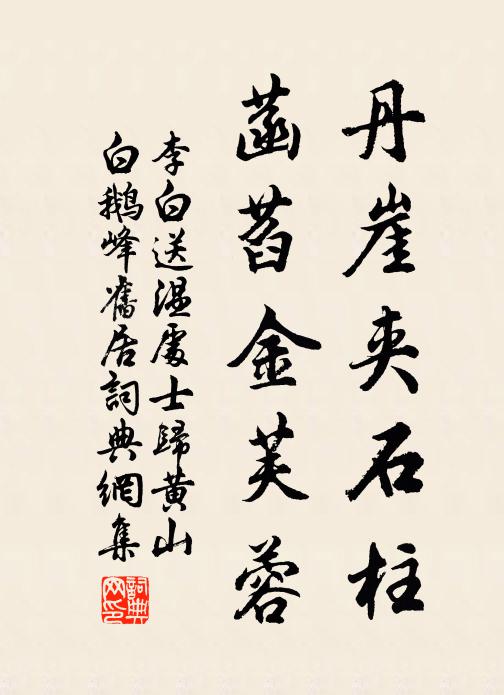 丹崖夾石柱
菡萏金芙蓉
李白送温處士歸黄山
白鵝峰舊居詞典網集
詞典
网印